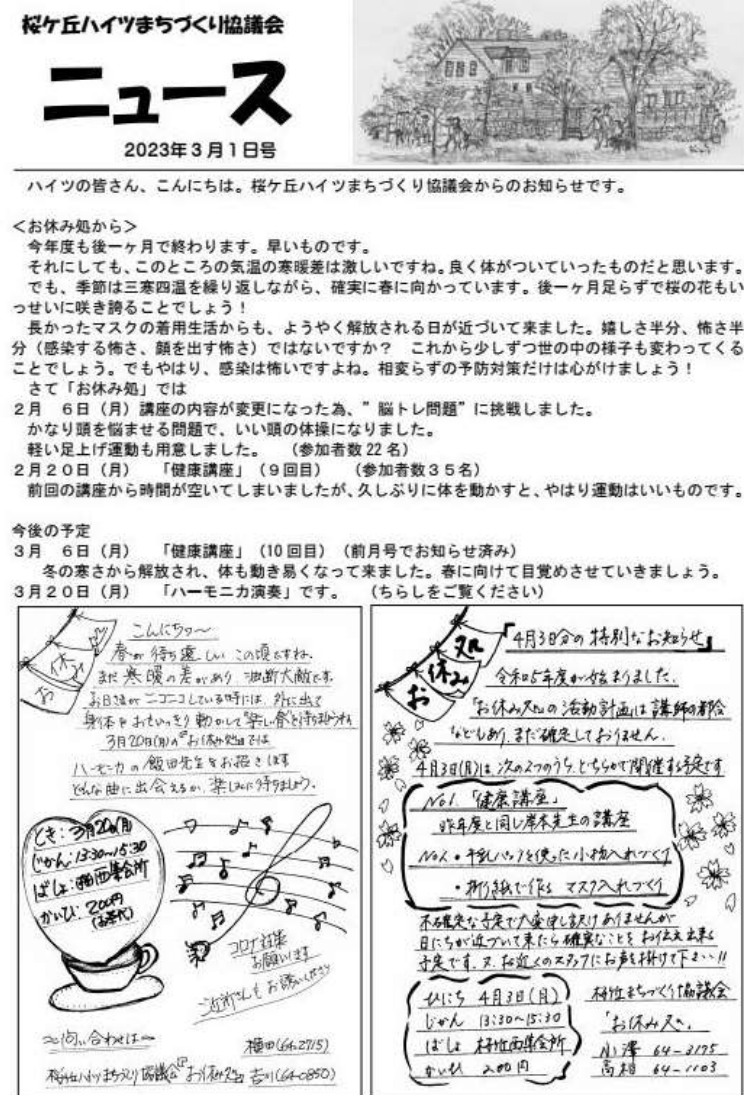 桜ケ丘ハイツまちづくり協議会
ニュース
2023年3月1日号
ハイツの皆さん、こんにちは。桜ケ丘ハイツまちづくり協議会からのお知らせです。
<お休み処から>
今年度も後一ヶ月で終わります。早いものです。
それにしても、このところの気温の寒暖差は激しいですね。良く体がついていったものだと思います。
でも、季節は三寒四温を繰り返しながら、確実に春に向かっています。後一ヶ月足らずで桜の花もい
っせいに咲き誇ることでしょう！
長かったマスクの着用生活からも、ようやく解放される日が近づいて来ました。嬉しさ半分、怖さ半
分（感染する怖さ、顔を出す怖さ）ではないですか？　これから少しずつ世の中の様子も変わってくる
ことでしょう。でもやはり、感染は怖いですよね。相変らずの予防対策だけは心がけましょう！
さて「お休み処」では
2月　6日（月）講座の内容が変更になった為、”脳トレ問題”に挑戦しました。
かなり頭を悩ませる問題で、いい頭の体操になりました。
軽い足上げ運動も用意しました。　（参加者数22名）
2月20日（月）　「健康講座」（9回目）　（参加者数35名）
前回の講座から時間が空いてしまいましたが、久しぶりに体を動かすと、やはり運動はいいものです。
今後の予定
3月　6日（月）　「健康講座」（10回目）（前月号でお知らせ済み）
冬の寒さから解放され、体も動き易くなって来ました。春に向けて目覚めさせていきましょう。
3月20日（月）　「ハーモニカ演奏」です。　（ちらしをご覧ください）
お休み処
こんにちわ～
春が待ち遠しいこの頃ですね。
まだ寒暖の差があり、油断大敵です。
お日さまがニコニコしている時には、外に出て
身体をおもいっきり動かして楽しい春を待ちましょうね
3月20日(月)の『お休み処』では
ハーモニカの飯田先生をお招きします
どんな曲に出会えるか、楽しみに待ちましょう。
とき：3月20日(月)
じかん：13:30～15:30
ばしょ：桜西集会所
かいひ：200円
(お茶代)
コロナ対策
お願いします
ご近所さんもお誘いください
～問い合わせは～
(64-2715)
桜ケ丘ハイツまちづくり協議会『お休み処』吉川(64-0850)
お休み処
『4月3日分の特別なお知らせ』
令和5年度が始まりました。
「お休み処」の活動計画は講師の都合
などもあり、まだ確定しておりません。
4月3日(月)は、次の2つのうち、どちらかで開催する予定です
No1.「健康講座」
昨年度と同じ岸本先生の講座
No2.・牛乳パックを使った小物入れづくり
・折り紙で作る　マスク入れづくり
不確定な予定で大変申し訳けありませんが
日にちが近づいて来たら確実なことをお伝え出来る
予定です。又、お近くのスタッフにお声を掛けて下さい!!
ひにち　4月3日(月)
じかん　13:30～15:30
ばしょ　桜ケ丘西集会所
かいひ　200円
桜ケ丘まちづくり協議会
「お休み処」
小澤　64-3175
高相　64-1103